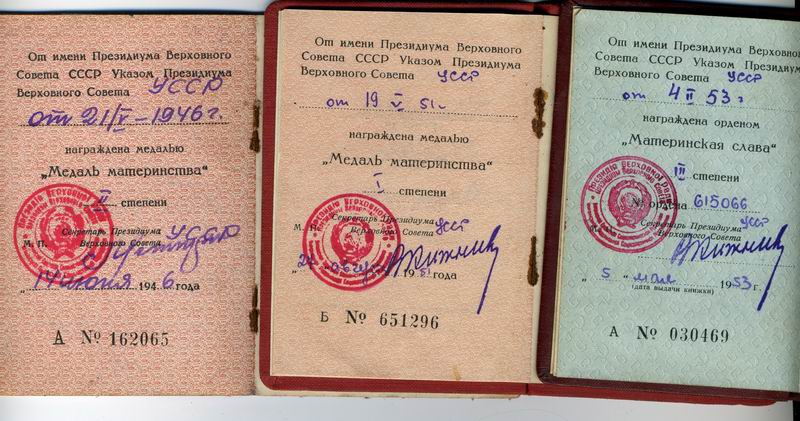 От имени Президиума Верховного
Совета СССР Указом Президиума
Верховного Совета УССР
от 21/V-1946г.
награждена медалью
„Медаль материнства“
II степени
Секретарь Президиума
М. П. Верховного Совета УССР
„14 июня 1946 года
А № 162065
От имени Президиума Верховного
Совета СССР Указом Президиума
Верховного Совета УССР
от 19 V 51г.
награждена медалью
„Медаль материнства“
I степени
Секретарь Президиума УССР
М. П. Верховного Совета
1951 года
Б № 651296
От имени Президиума Верховного
Совета СССР Указом Президиума
Верховного Совета УССР
от 4 II 53г
награждена орденом
„Материнская слава“
III степени
№ ордена 615066
Секретарь Президиума УССР
М. П. Верховного Совета
„5“ мая 1953г.
(дата выдачи книжки)
А № 030469